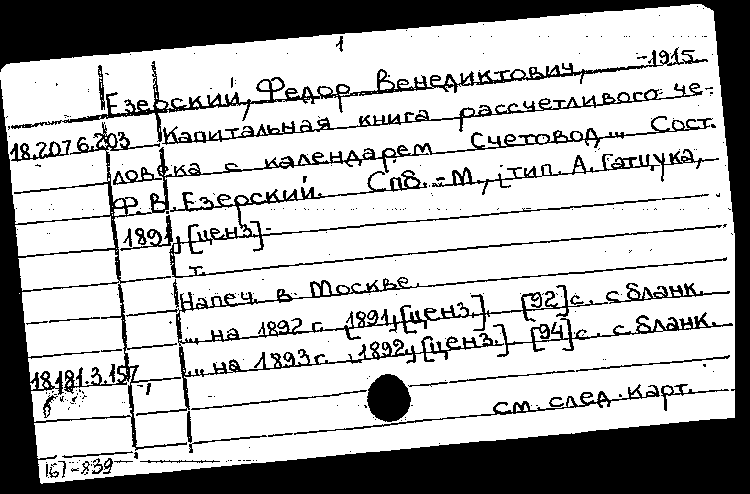 1
Езерский, Федор Венедиктович, -1915
18.207.6.203 Капитальная книга рассчетливого че-
ловека с календарем Счетовод... Сост.
Ф. В. Езерский. Спб.-М., тип. А. Гатцука,
1891, [ценз.]-
т.
Напеч. в Москве.
... на 1892 г. 1891, [ценз.]. [92] с. с бланк.
18.181.3.157, ... на 1893 г. 1892, [ценз.] [94] с. с бланк.
см. след. карт.
167-839